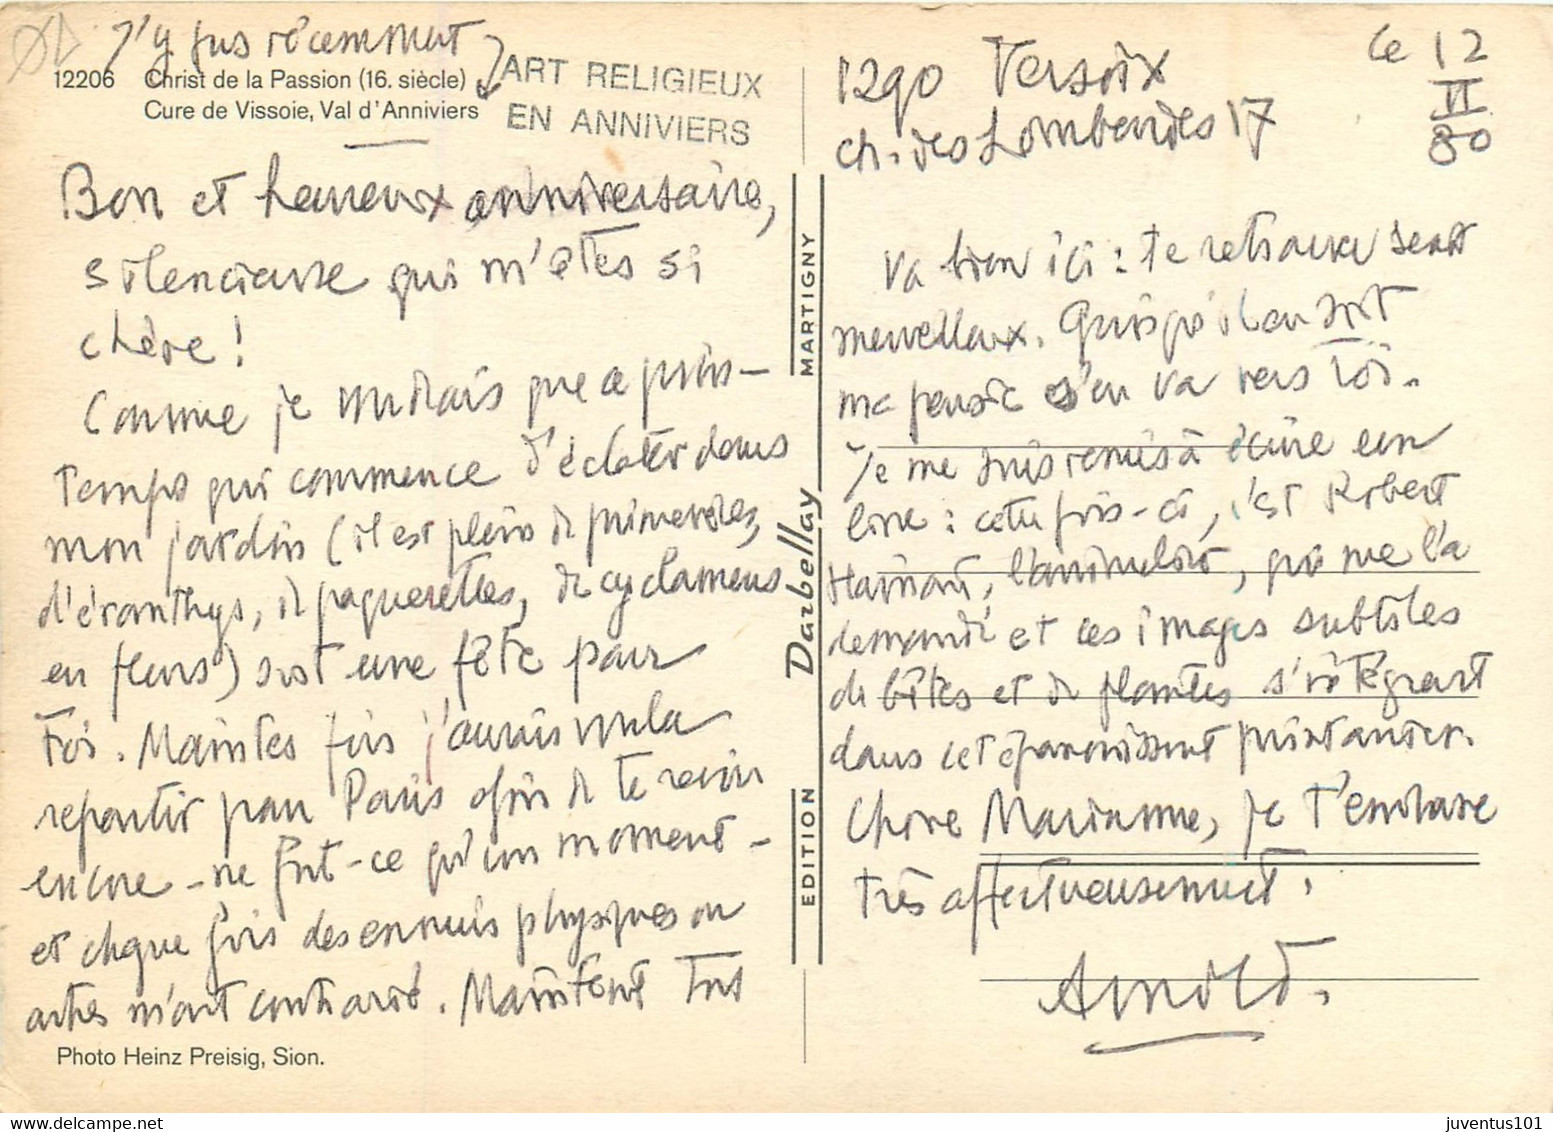 J'y fus récemment
12206 Christ de la Passion (16. siècle)
Cure de Vissoie, Val d'Anniviers
ART RELIGIEUX
EN ANNIVIERS
Bon et heureux anniversaire,
silencieuse qui m'êtes si
chère !
Comme je voudrais que ce prin-
temps qui commence d'éclater dans
mon jardin (il est plein de primevères,
d'éranthys, de paquerettes, de cyclamens
en fleurs) soit une fête pour
Toi. Maintes fois j'aurais voulu
repartir pour Paris afin de te revoir
encore - ne fut-ce qu'un moment -
et chque fois des ennuis physiques ou
autres m'ont contrarié. Maintent tout
Photo Heinz Preisig, Sion.
EDITION Darbellay MARTIGNY
1290 Versoix
ch. des Lombardes 17
Ce 12
II
80
va bien ici : te retrouver serait
merveilleux. Quoiqu'il en soit
ma pensée s'en va vers Toi.
Je me suis remis à écrire un
livre : cette fois-ci, c'est Robert
Hainard, l'animalier, qui me l'a
demandé et ces images subtiles
de bêtes et de plantes s'intégrant
dans cet épanouissement printanier.
Chère Marianne, je t'embrasse
très affectueusement.
Arnold.
juventus101